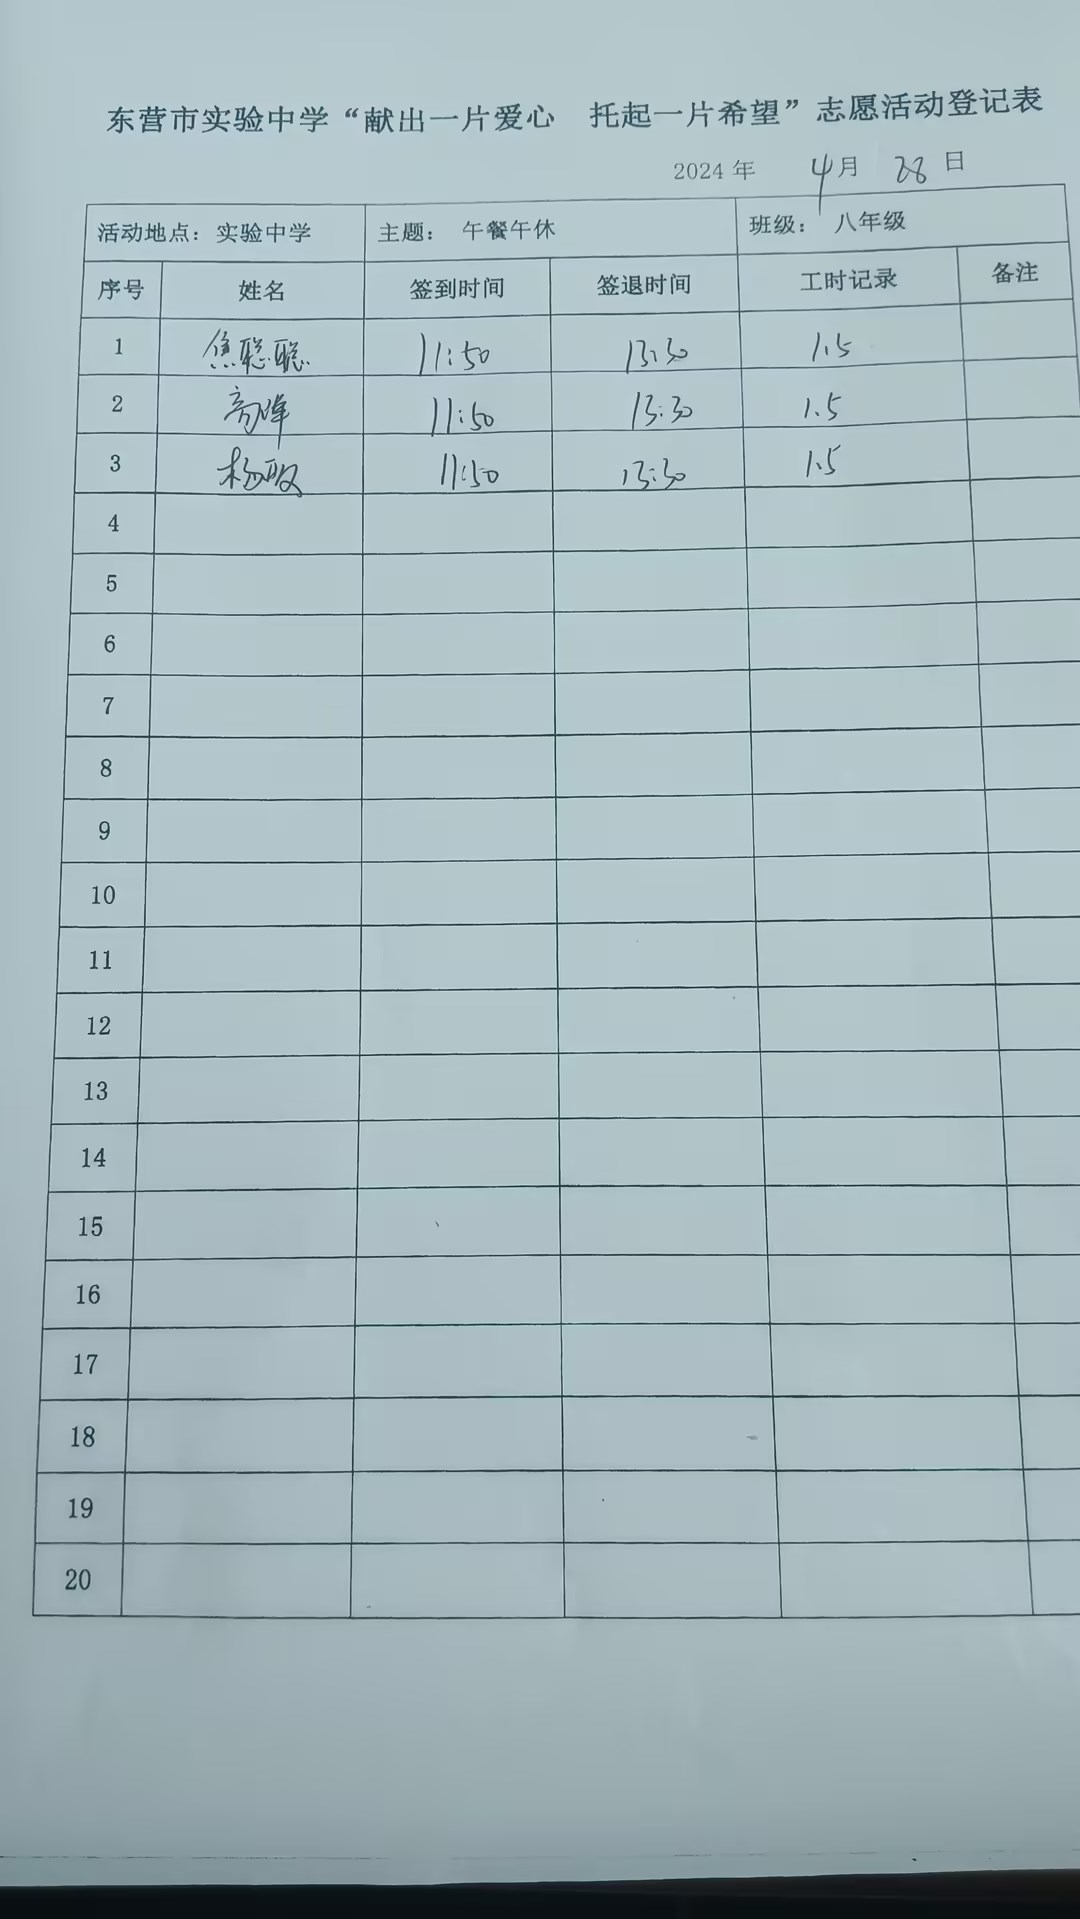 东营市实验中学“献出一片爱心 托起一片希望”志愿活动登记表
2024 年 4月 28 日
活动地点：实验中学 主题： 午餐午休 班级： 八年级
序号 姓名 签到时间 签退时间 工时记录 备注
1 焦聪聪 11:50 13:30 1.5
2 高 11:50 13:30 1.5
3 杨 11:50 13:30 1.5
4
5
6
7
8
9
10
11
12
13
14
15
16
17
18
19
20